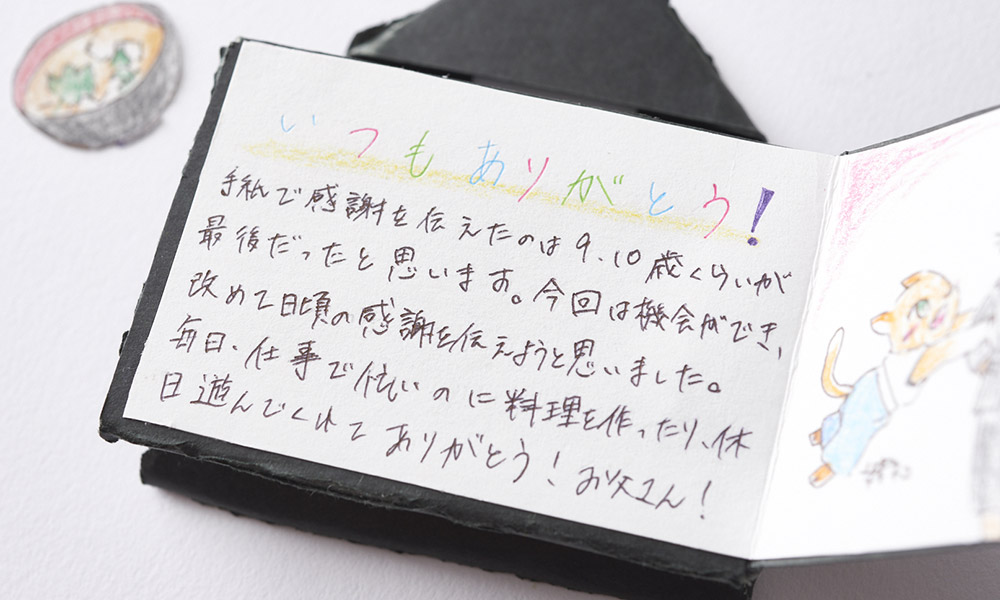 いつもありがとう！
手紙で感謝を伝えたのは9、10歳くらいが
最後だったと思います。今回は機会ができ、
改めて日頃の感謝を伝えようと思いました。
毎日、仕事で忙しいのに料理を作ったり、休
日遊んでくれてありがとう！お父さん！